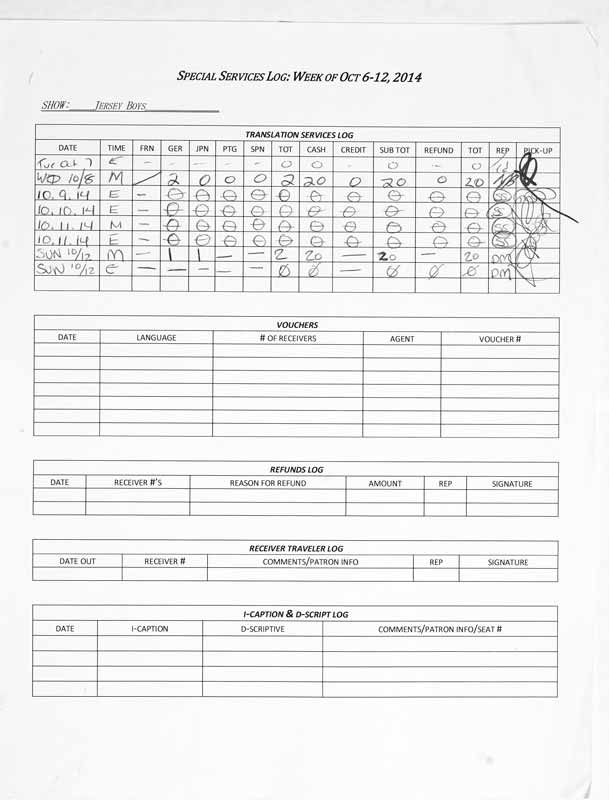 SPECIAL SERVICES LOG: WEEK OF OCT 6-12, 2014
SHOW: JERSEY BOYS
TRANSLATION SERVICES LOG
DATE TIME FRN GER JPN PTG SPN TOT CASH CREDIT SUB TOT REFUND TOT REP PICK-UP
Tue Oct 7 E - - - - - 0 0 - 0 - 0
WED 10/8 M / 2 0 0 0 2 20 0 20 0 20
10.9.14 E - 0 0 0 0 0 0 0 0 0 0 SS
10.10.14 E - 0 0 0 0 0 0 0 0 0 0 SS
10.11.14 M - 0 0 0 0 0 0 0 0 0 0 SS
10.11.14 E - 0 0 0 0 0 0 0 0 0 0 SS
SUN 10/12 M - 1 1 - - 2 20 - 20 - 20 DM
SUN 10/12 E - - - - - 0 0 - 0 0 0 DM
VOUCHERS
DATE LANGUAGE # OF RECEIVERS AGENT VOUCHER #
REFUNDS LOG
DATE RECEIVER #'S REASON FOR REFUND AMOUNT REP SIGNATURE
RECEIVER TRAVELER LOG
DATE OUT RECEIVER # COMMENTS/PATRON INFO REP SIGNATURE
I-CAPTION & D-SCRIPT LOG
DATE I-CAPTION D-SCRIPTIVE COMMENTS/PATRON INFO/SEAT #